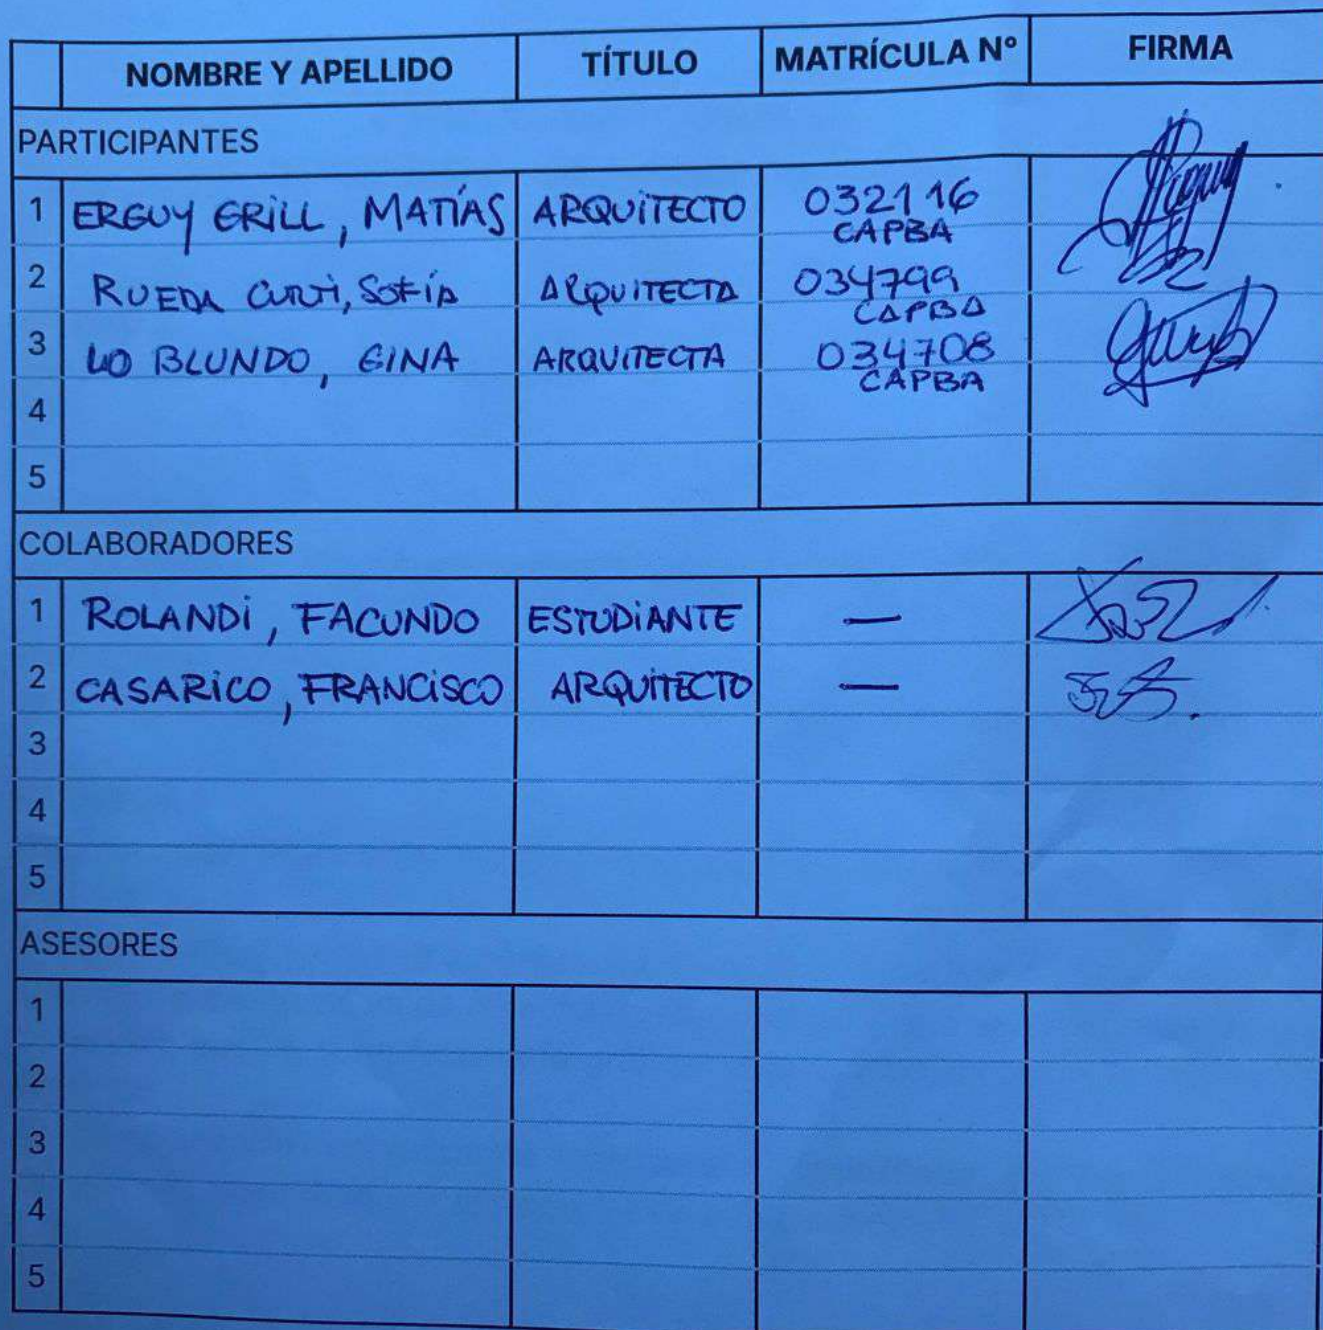 NOMBRE Y APELLIDO TÍTULO MATRÍCULA Nº FIRMA
PARTICIPANTES
1 ERGUY GRILL, MATÍAS ARQUITECTO 032116 CAPBA
2 RUEDA CURTI, SOFÍA ARQUITECTA 034799 CAPBA
3 LO BLUNDO, GINA ARQUITECTA 034708 CAPBA
4
5
COLABORADORES
1 ROLANDI, FACUNDO ESTUDIANTE —
2 CASARICO, FRANCISCO ARQUITECTO —
3
4
5
ASESORES
1
2
3
4
5